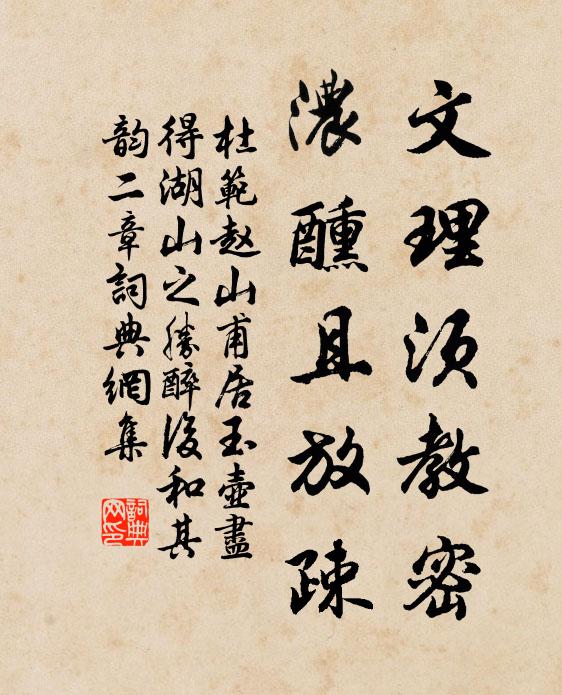 文理須教密
濃醺且放疎
杜範赵山甫居玉壺盡
得湖山之勝醉後和其
韵二章詞典網集
詞典网印